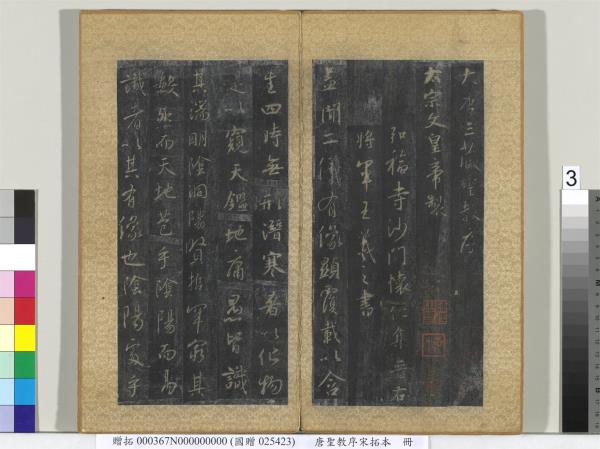 大唐三藏聖教序
太宗文皇帝製
弘福寺沙門懷仁集晉右
將軍王羲之書
蓋聞二儀有像顯覆載以含
生四時無形潛寒暑以化物
是以窺天鑑地庸愚皆識
其端明陰洞陽賢哲罕窮其
數然而天地苞乎陰陽而易
識者以其有像也陰陽處乎
3
贈拓 000367N000000000 (國贈 025423) 唐聖教序宋拓本 冊